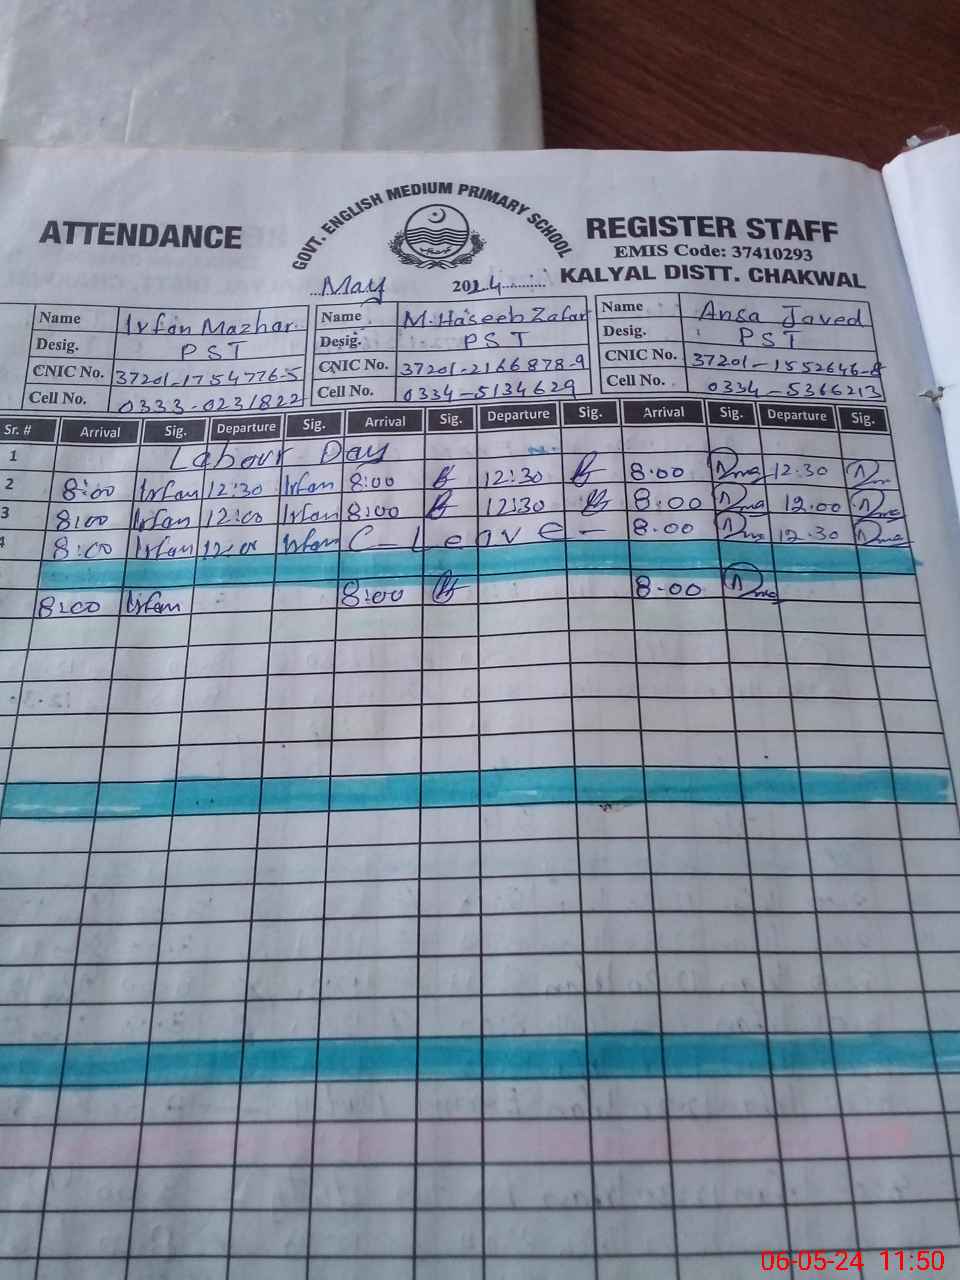 GOVT. ENGLISH MEDIUM PRIMARY SCHOOL
ATTENDANCE REGISTER STAFF
EMIS Code: 37410293
KALYAL DISTT. CHAKWAL
May 2024
Name Irfan Mazhar Name M. Haseeb Zafar Name Ansa Javed
Desig. PST Desig. PST Desig. PST
CNIC No. 37201-1754776-5 CNIC No. 37201-2166878-9 CNIC No. 37201-1552646-8
Cell No. 0333-0231822 Cell No. 0334-5134629 Cell No. 0334-5366213
Sr. # Arrival Sig. Departure Sig. Arrival Sig. Departure Sig. Arrival Sig. Departure Sig.
1 Labour Day
2 8:00 Irfan 12:30 Irfan 8:00 12:30 8:00 12:30
3 8:00 Irfan 12:00 Irfan 8:00 12:30 8:00 12:00
4 8:00 Irfan 12:00 Irfan C-Leave- 8:00 12:30
8:00 Irfan 8:00 8:00
06-05-24 11:50